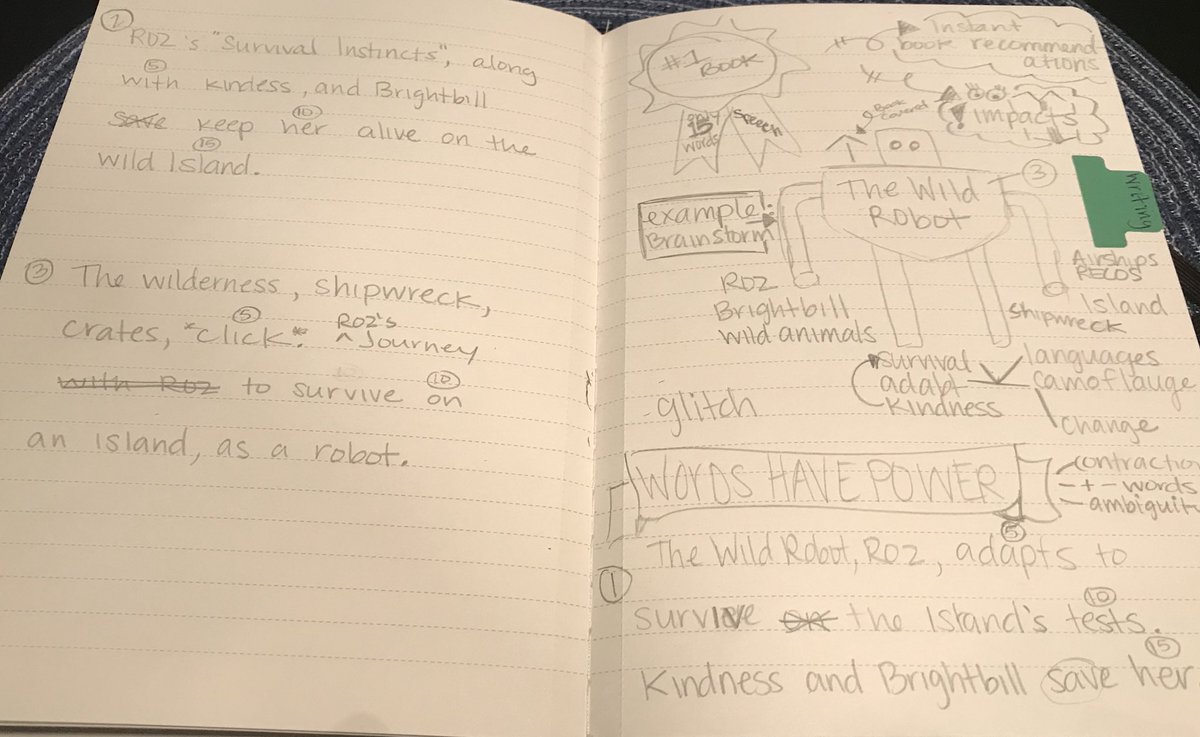 ②
ROZ's "Survival Instincts", along
⑤
with kindess, and Brightbill
⑩
save keep her alive on the
⑮
wild Island.
③ The wilderness, shipwreck,
⑤
crates, *click*. ROZ's Journey
⑩
with ROZ to survive on
an island, as a robot.
#1 BOOK
only 15 words
speech
Instant
book recommend
ations
! impacts
Book
The Wild
ROBOT
③
example:
Brainstorm
ROZ
Brightbill
wild animals
Airships
RECOS
Island
shipwreck
survival
adapt
Kindness
languages
camoflauge
change
- glitch
WORDS HAVE POWER
contraction
- + - words
- ambiguit
writing
⑤
① The Wild Robot, ROZ, adapts to
⑩
survive on the Island's tests.
⑮
Kindness and Brightbill save her